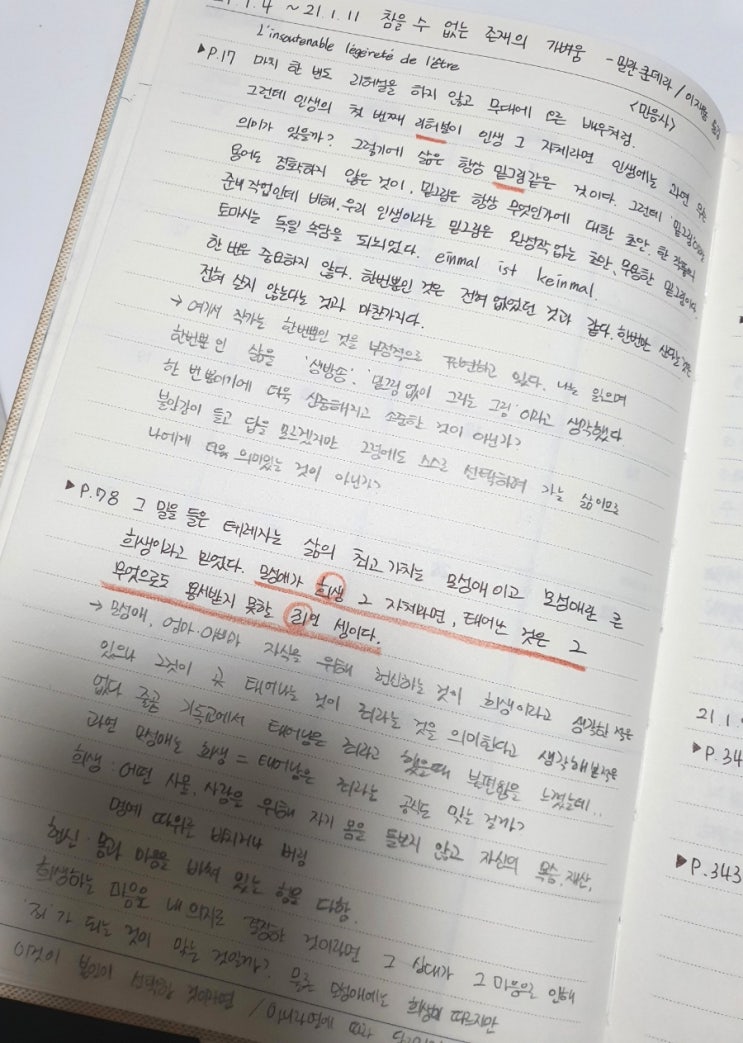 21.1.4 ~ 21.1.11 참을 수 없는 존재의 가벼움 - 밀란 쿤데라 / 이재룡 옮김
L'insoutenable légèreté de l'être <민음사>
▶P.17 마치 한 번도 리허설을 하지 않고 무대에 오른 배우처럼.
그런데 인생의 첫 번째 리허설이 인생 그 자체라면 인생에는 과연 무슨
의미가 있을까? 그렇기에 삶은 항상 밑그림같은 것이다. 그런데 '밑그림'이라는
용어도 정확하지 않은 것이, 밑그림은 항상 무엇인가에 대한 초안, 한 작품의
준비작업인데 비해, 우리 인생이라는 밑그림은 완성작 없는 초안, 무용한 밑그림이다.
토마시는 독일 속담을 되뇌었다. einmal ist keinmal.
한 번은 중요하지 않다. 한번뿐인 것은 전혀 없었던 것과 같다. 한번만 산다는 것은
전혀 살지 않는다는 것과 마찬가지다.
→ 여기서 작가는 한번뿐인 것을 부정적으로 표현하고 있다. 나는 읽으며
한번뿐인 삶을 '생방송', '밑그림 없이 그리는 그림' 이라고 생각했다.
한 번뿐이기에 더욱 신중해지고 소중한 것이 아닌가?
불안감이 들고 답을 모르겠지만 그럼에도 스스로 선택하여 가는 삶이므로
나에게 더욱 의미있는 것이 아닌가?
▶P.78 그 말을 들은 테레자는 삶의 최고 가치는 모성애이고 모성애란 큰
희생이라고 믿었다. 모성애가 희생 그 자체라면, 태어난 것은 그
무엇으로도 용서받지 못할 죄인 셈이다.
→ 모성애, 엄마·아빠가 자식을 위해 헌신하는 것이 희생이라고 생각한 적은
있으나 그것이 곧 태어나는 것이 죄라는 것을 의미한다고 생각해본적은
없다. 줄곧 기독교에서 태어남은 죄라고 했을때 불편함을 느꼈는데..
과연 모성애는 희생 = 태어남은 죄라는 공식도 맞는 걸까?
희생 : 어떤 사물, 사람을 위해 자기 몸을 돌보지 않고 자신의 목숨, 재산,
명예 따위를 바치거나 버림
헌신 : 몸과 마음을 바쳐 있는 힘을 다함.
희생하는 마음을 내 의지로 결정한 것이라면 그 상대가 그 마음으로 인해
'죄'가 되는 것이 맞는 것일까? 물론 모성애에도 희생이 따르지만
이것이 본인이 선택한 것이라면 /
21.1.
▶P.34
▶P.343